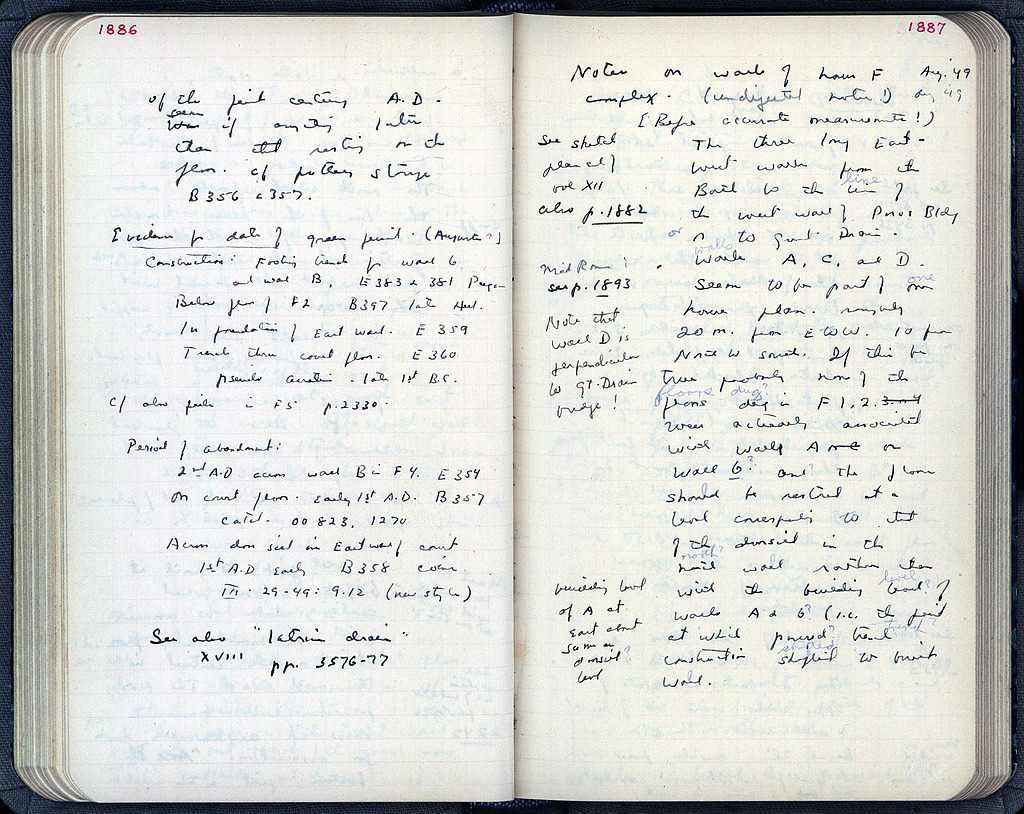 1886
of the first century A.D.
seem
if anything later
than that resting on the
floor. cf pottery
B 356 & 357.
Evidence for date of green period. (Augustan?)
Construction: Footing trench for wall 6
and wall B. E 383 & 381
Below floor of F2 B397 late Hel.
In foundation of East wall. E 359
Trench thru court floor. E 360
pseudo late 1st B.C.
Cf also in F5 p. 2330.
Period of abandonment:
2nd A.D across wall B in F4. E 354
On court floor. Early 1st A.D. B 357
Catal. 00 823, 1270
Across door sill in East wall of court
1st A.D early B358 coin
III 29-49: 9.12 (new style)
See also "latrine drain"
XVIII pp. 3576-77
1887
Notes on walls of house F Aug. '49
complex. (undigested notes!) Aug '49
[Before accurate measurements!)
See sketch
plan at
vol XII
also p. 1882
The three long East-
West walls from the
Bath to the line of
line
the west wall of Poros Bldg
or to Great Drain
walls
Walls A, C, and D.
seem to be part of one
one
house plan. roughly
20 m. from E to W. 10 from
North to south. If this be
true probably none of the
floors dug?
floors dug in F 1, 2. 3
were actually associated
with walls A or
Wall 6? and? the floor
should be restored at a
level corresponding to that
of the doorsill in the
north?
north wall rather than
level
with the building level? of
walls A & 6? (i.e. the point
at which
construction stopped to
wall.
Mid Room!
see p. 1893
Note that
wall D is
perpendicular
to Gt. Drain
bridge!
building level
of A at
East about
same as
doorsill?
level